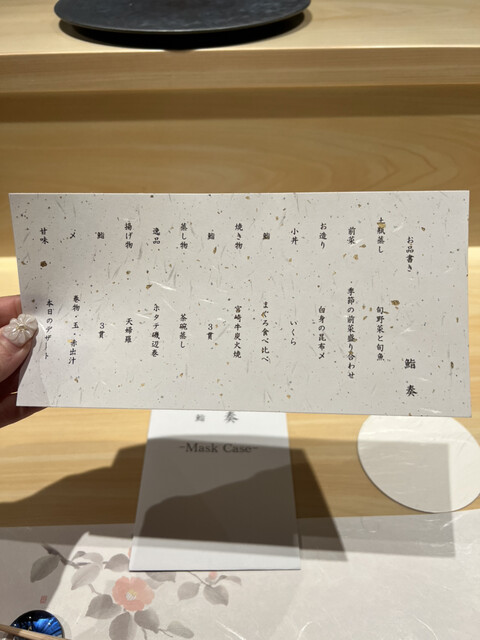 お品書き 鮨 奏
土瓶蒸し 旬野菜と旬魚
前菜 季節の前菜盛り合わせ
お造り 白身の昆布〆
小丼 いくら
鮨 まぐろ食べ比べ
焼き物 宮崎牛炭火焼
鮨 3貫
蒸し物 茶碗蒸し
逸品 ホタテ磯辺巻
揚げ物 天婦羅
鮨 3貫
〆 巻物・玉・赤出汁
甘味 本日のデザート
鮨 奏
-Mask Case-